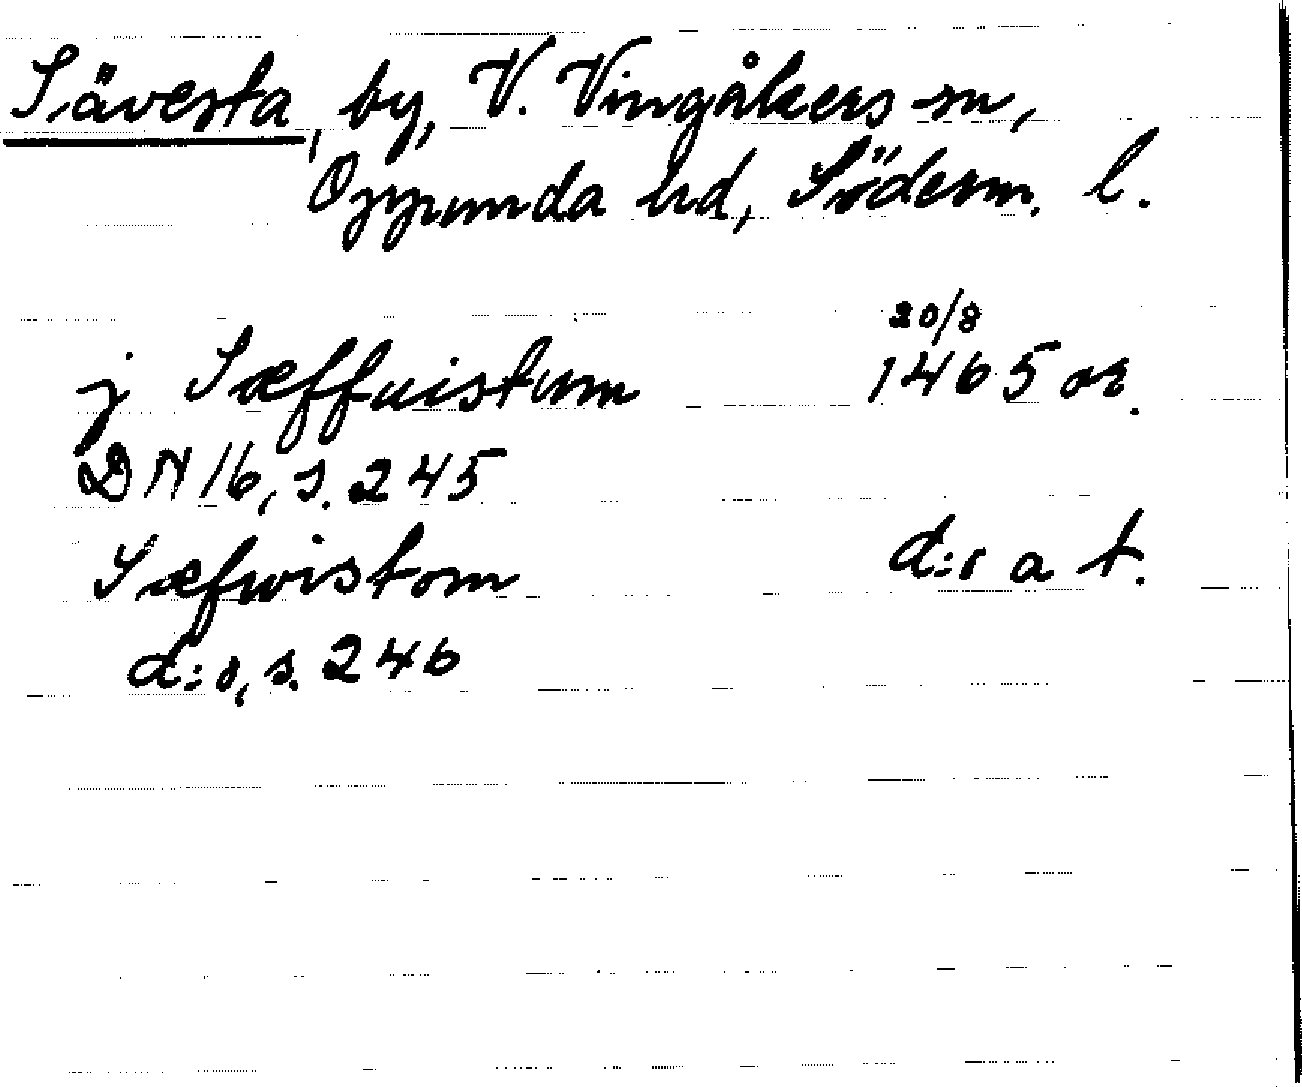 Sävesta, by, V. Vingåkers sn,
Oppunda hd, Söderm. l.
20/8
j Sæffuistum 1465 or.
DN 16, s. 245
Sæfwistom d:o a t.
d:o, s. 246